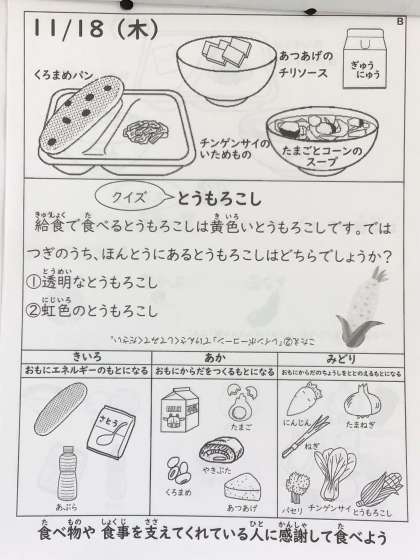 11/18（木）
B
くろまめパン
あつあげの
チリソース
ぎゅう
にゅう
チンゲンサイの
いためもの
たまごとコーンの
スープ
クイズ
とうもろこし
給食で食べるとうもろこしは黄色いとうもろこしです。では
きゅうしょく た きいろ
つぎのうち、ほんとうにあるとうもろこしはどちらでしょうか？
①透明なとうもろこし
とうめい
②虹色のとうもろこし
にじいろ
こたえ②「レインボーコーン」でけんさくしてみてください。
きいろ
おもにエネルギーのもとになる
あか
おもにからだをつくるもとになる
みどり
おもにからだのちょうしをととのえるもとになる
さとう
あぶら
たまご
やきぶた
くろまめ
あつあげ
にんじん
たまねぎ
ねぎ
パセリ
チンゲンサイ
とうもろこし
食べ物や食事を支えてくれている人に感謝して食べよう
た もの しょくじ ささ ひと かんしゃ た